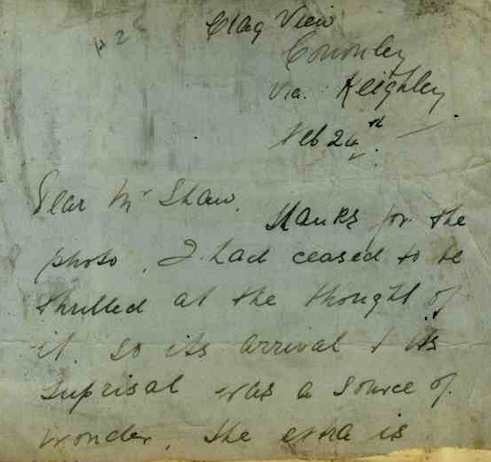 Clag View
Cononley
via. Keighley
Feb 24th.
Dear Mr Shaw.
Thanks for the
photo. I had ceased to be
thrilled at the thought of
it so its arrival & its
suprisal was a source of
wonder. The extra is